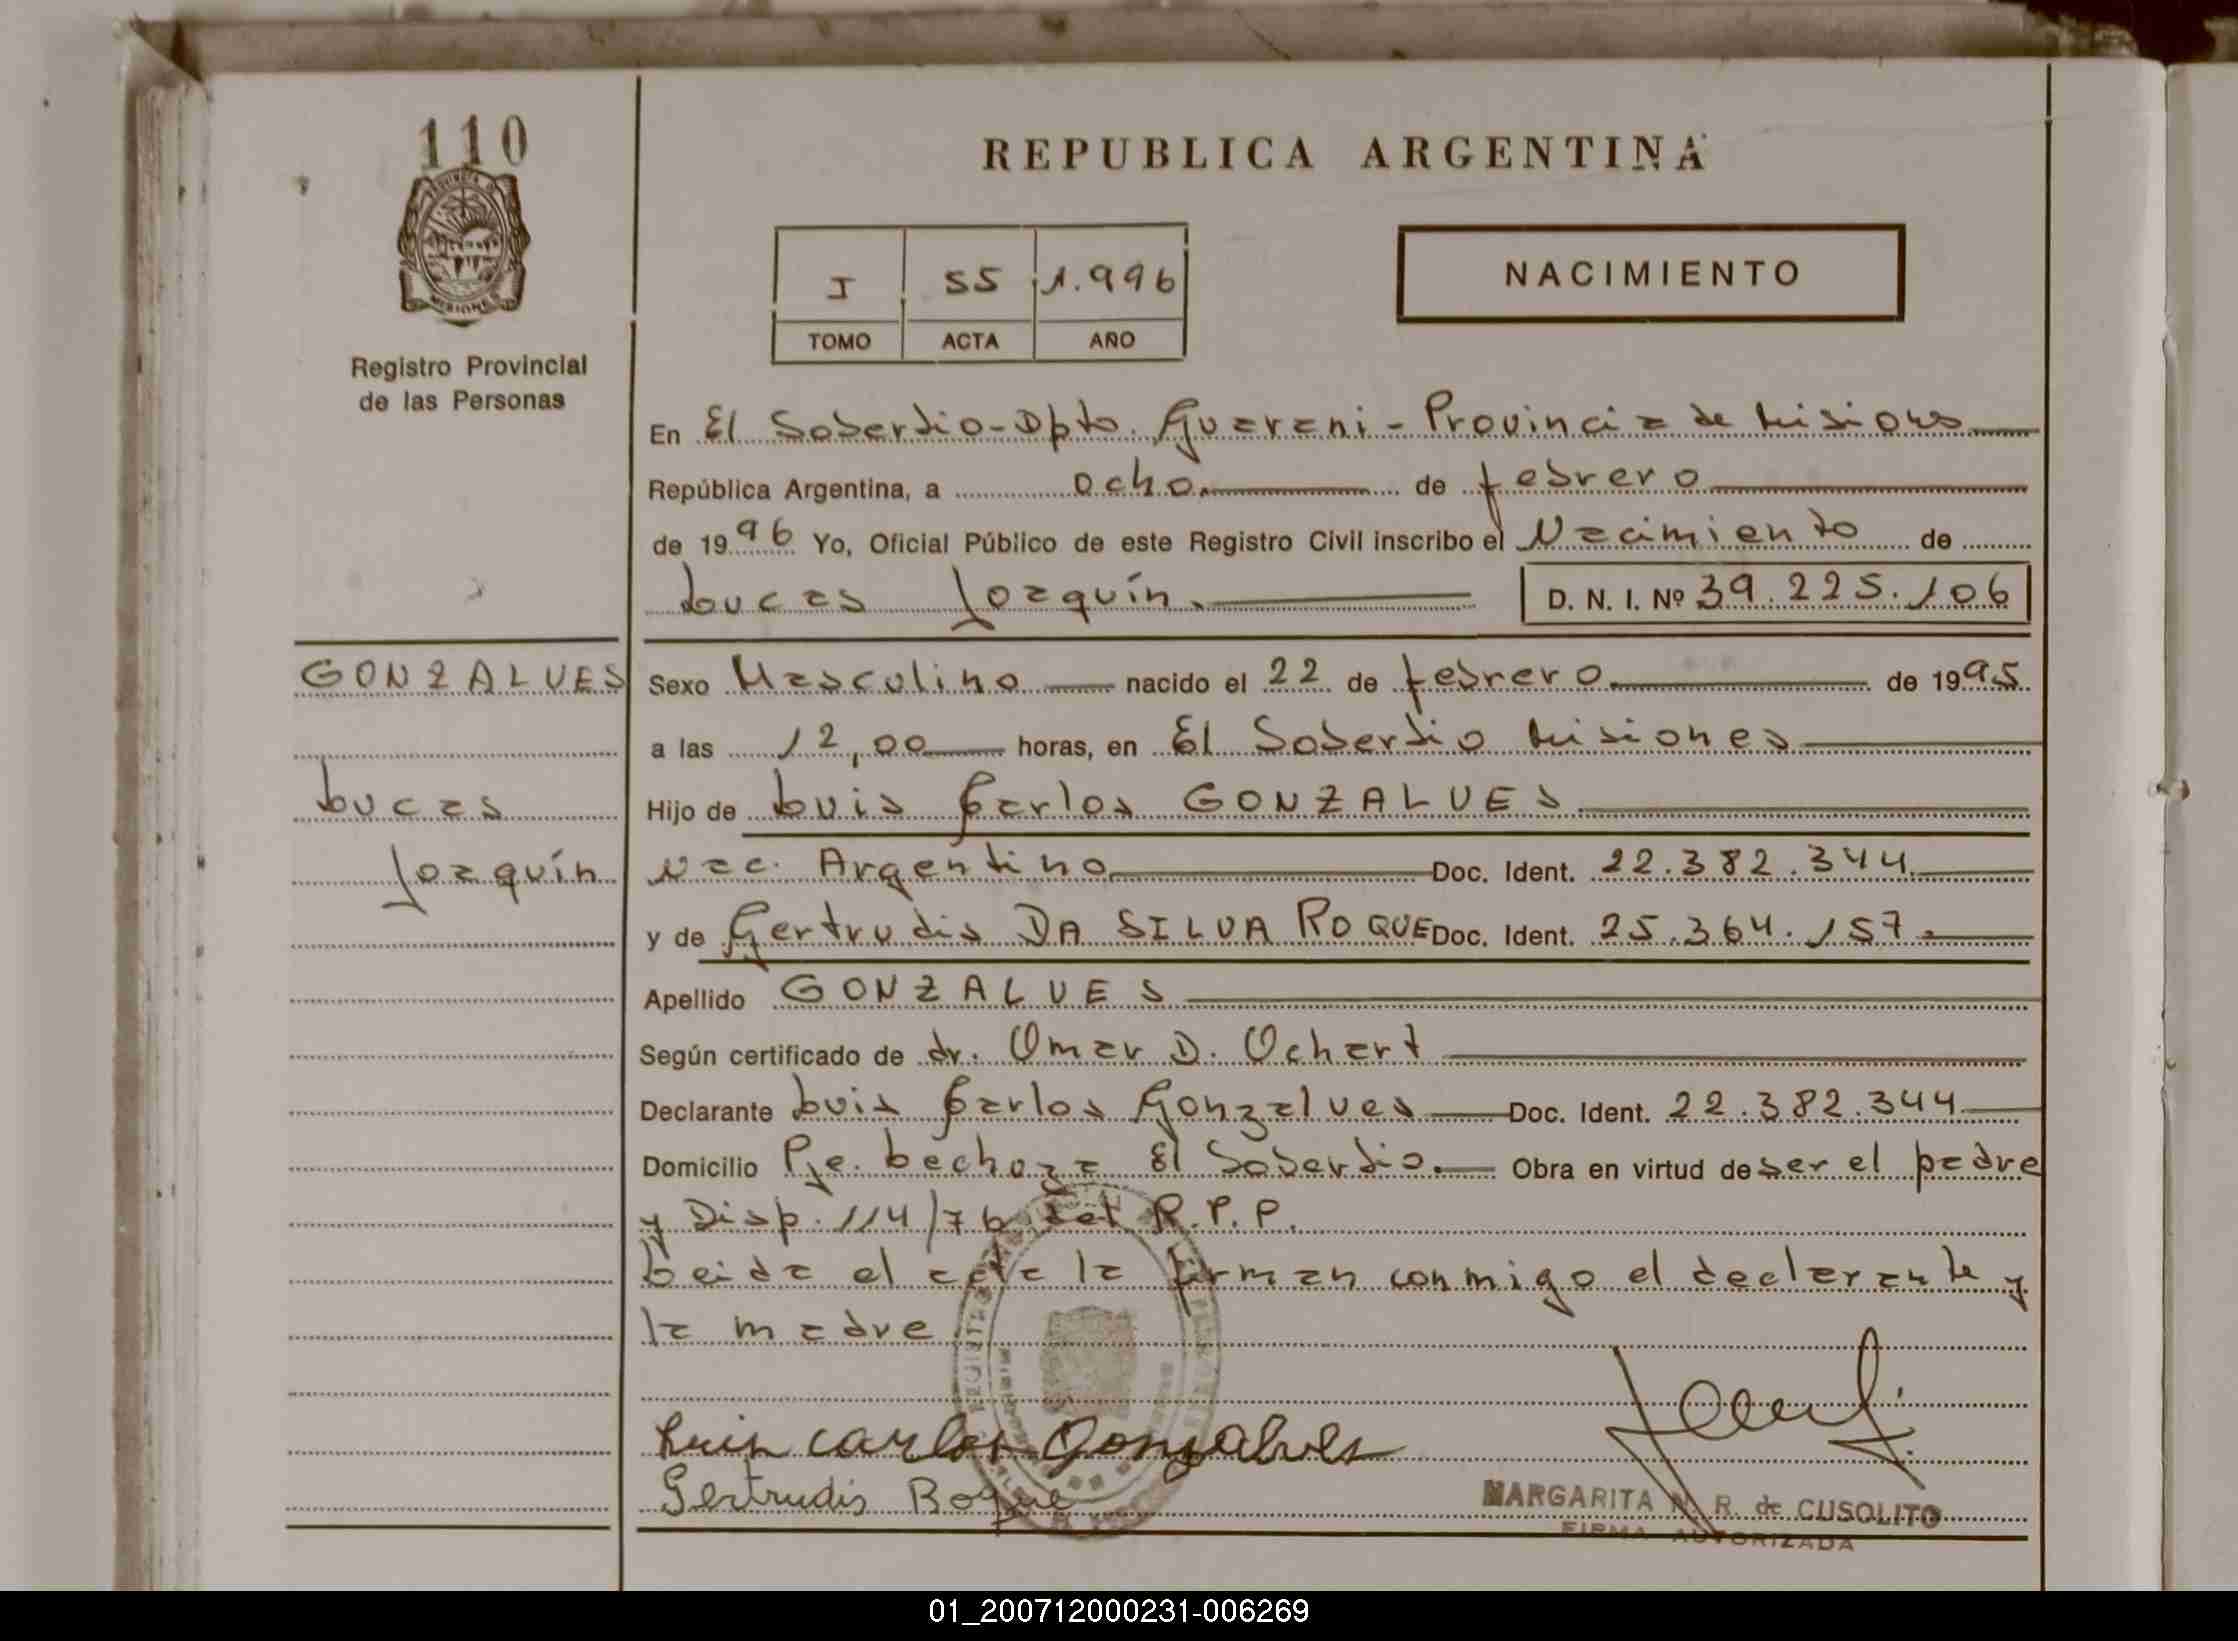 110
REPUBLICA ARGENTINA
PROVINCIA DE
MISIONES
Registro Provincial
de las Personas
I 55 1.996
TOMO ACTA AÑO
NACIMIENTO
En El Soberbio - Dpto. Guarani - Provincia de Misiones
República Argentina, a ocho. de febrero
de 1996 Yo, Oficial Público de este Registro Civil inscribo el Nacimiento de
Lucas Joaquín. D. N. I. Nº 39.225.106
GONZALVES
Lucas
Joaquín
Sexo Masculino nacido el 22 de febrero de 1995
a las 12,00 horas, en El Soberbio Misiones
Hijo de Luis Carlos GONZALVES
Nac. Argentino Doc. Ident. 22.382.344
y de Gertrudis DA SILVA ROQUE Doc. Ident. 25.364.157.
Apellido GONZALVES
Según certificado de dr. Omar D. Ochart
Declarante Luis Carlos Gonzalves Doc. Ident. 22.382.344
Domicilio Pje. Lechoza El Soberbio. Obra en virtud de ser el padre
y Disp. 114/76 del R.P.P.
Leida el acta la firman conmigo el declarante y
la madre
Luis Carlos Gonzalves
Gertrudis Roque
MARGARITA N. R. de CUSOLITO
FIRMA AUTORIZADA
01_200712000231-006269